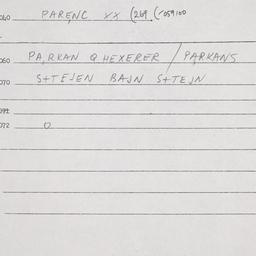 060 PARENC XX (269 (-059100
060 PARKAN Q HEXERER / PARKANS
070 S+TEJEN BAJN S+TEJN
091
072 0